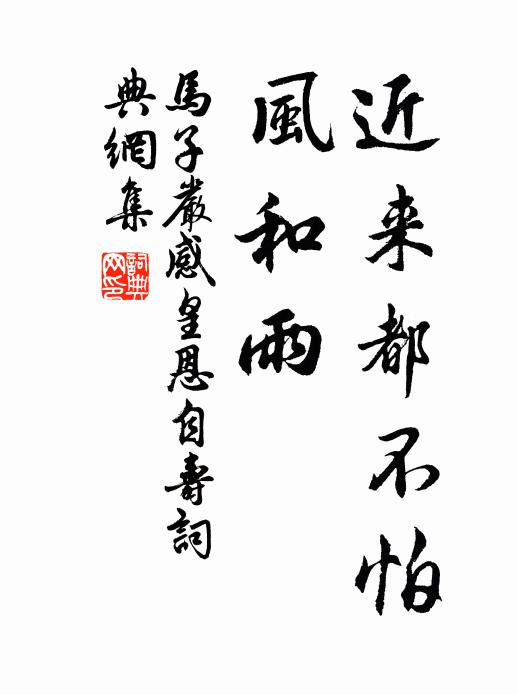 近来都不怕
風和雨
馬子嚴感皇恩自壽詞
典網集
詞典
网印